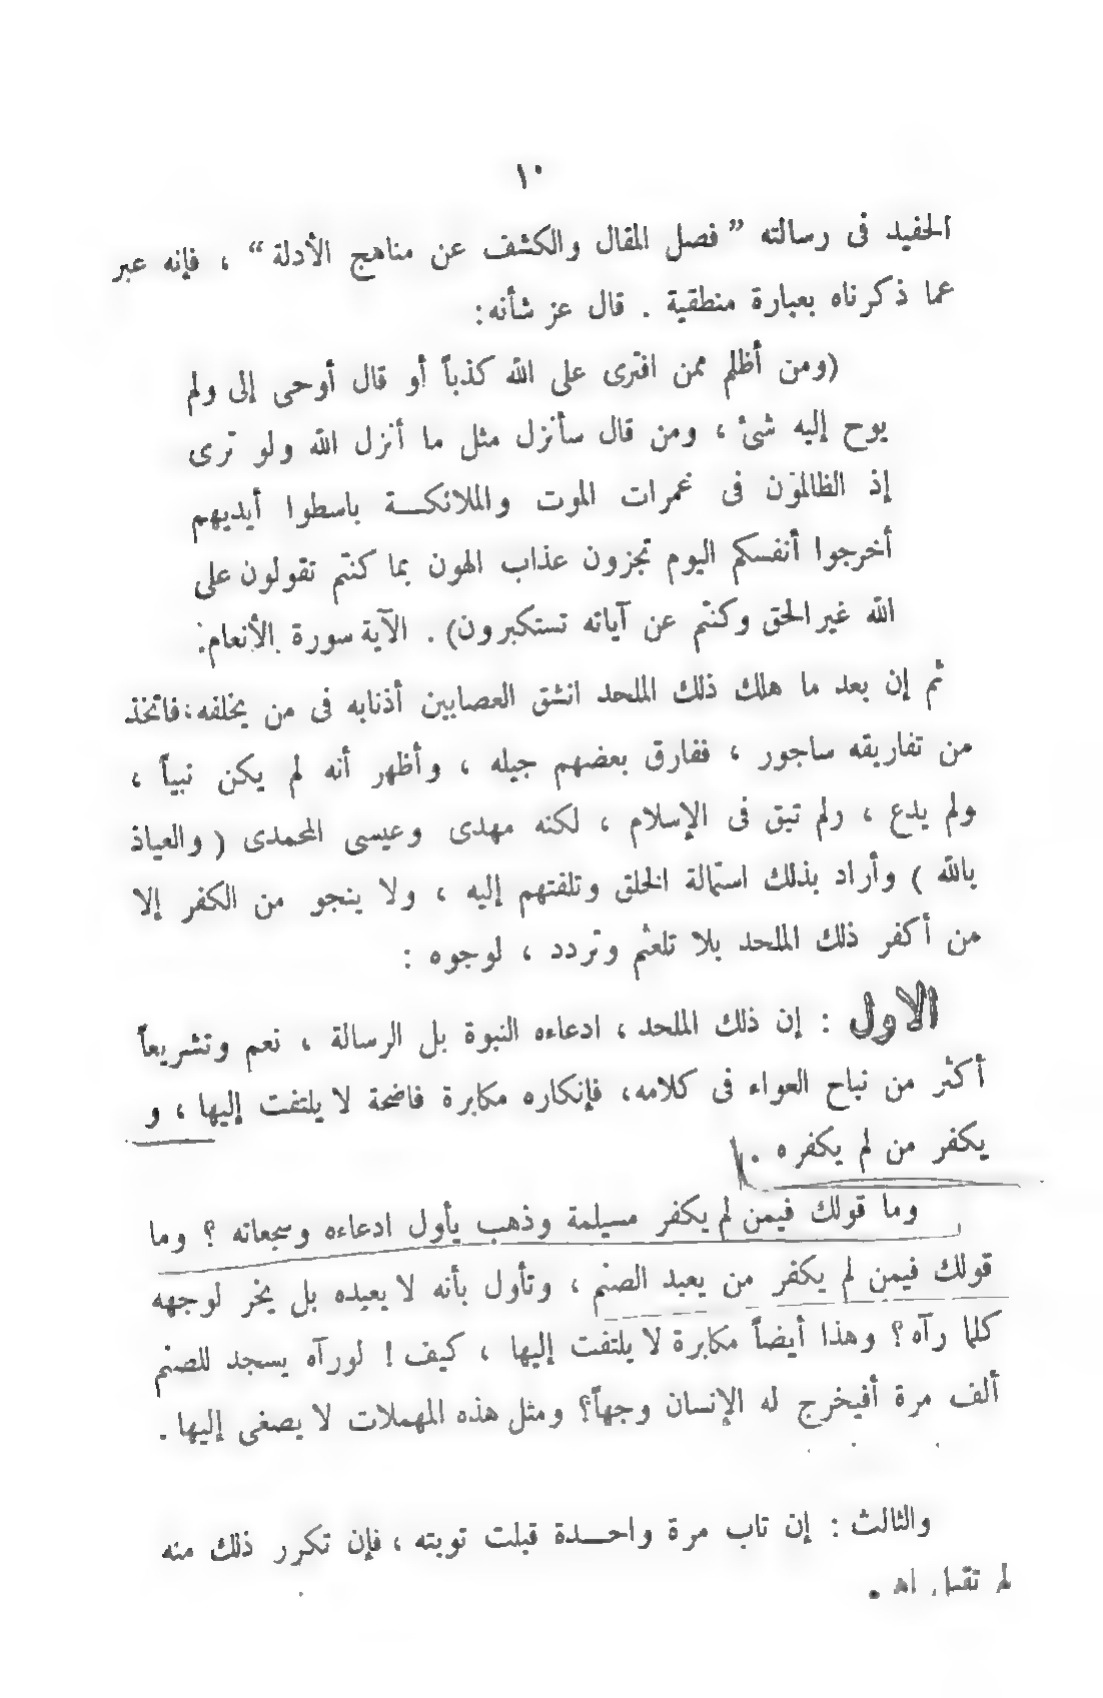 ١٠
الحفيد فى رسالته ” فصل المقال والكشف عن مناهج الأدلة “ ، فإنه عبر
عما ذكرناه بعبارة منطقية . قال عز شأنه:
(ومن أظلم ممن افترى على الله كذباً أو قال أوحى إلى ولم
يوح إليه شئ ، ومن قال سأنزل مثل ما أنزل الله ولو ترى
إذ الظالمون فى غمرات الموت والملائكة باسطوا أيديهم
أخرجوا أنفسكم اليوم تجزون عذاب الهون بما كنتم تقولون على
الله غير الحق وكنتم عن آياته تستكبرون) . الآية سورة الأنعام.
ثم إن بعد ما هلك ذلك الملحد انشق العصابين أذنابه فى من يخلفه، فاتخذ
من تفاريقه ساجور ، ففارق بعضهم جيله ، وأظهر أنه لم يكن نبياً ،
ولم يدع ، ولم تبق فى الإسلام ، لكنه مهدى وعيسى المحمدى ( والعياذ
بالله ) وأراد بذلك استمالة الخلق وتلفتهم إليه ، ولا ينجو من الكفر إلا
من أكفر ذلك الملحد بلا تلعثم وتردد ، لوجوه :
الاول : إن ذلك الملحد ، ادعاءه النبوة بل الرسالة ، نعم وتشريعاً
أكثر من نباح العواء فى كلامه، فإنكاره مكابرة فاضحة لا يلتفت إليها ، و
يكفر من لم يكفره .
وما قولك فيمن لم يكفر مسيلمة وذهب يأول ادعاءه وسجعاته ؟ وما
قولك فيمن لم يكفر من يعبد الصنم ، وتأول بأنه لا يعبده بل يخر لوجهه
كلما رآه ؟ وهذا أيضاً مكابرة لا يلتفت إليها ، كيف ! لورآه يسجد للصنم
ألف مرة أفيخرج له الإنسان وجهاً؟ ومثل هذه المهملات لا يصغى إليها .
والثالث : إن تاب مرة واحدة قبلت توبته ، فإن تكرر ذلك منه
لم تقبل اه .